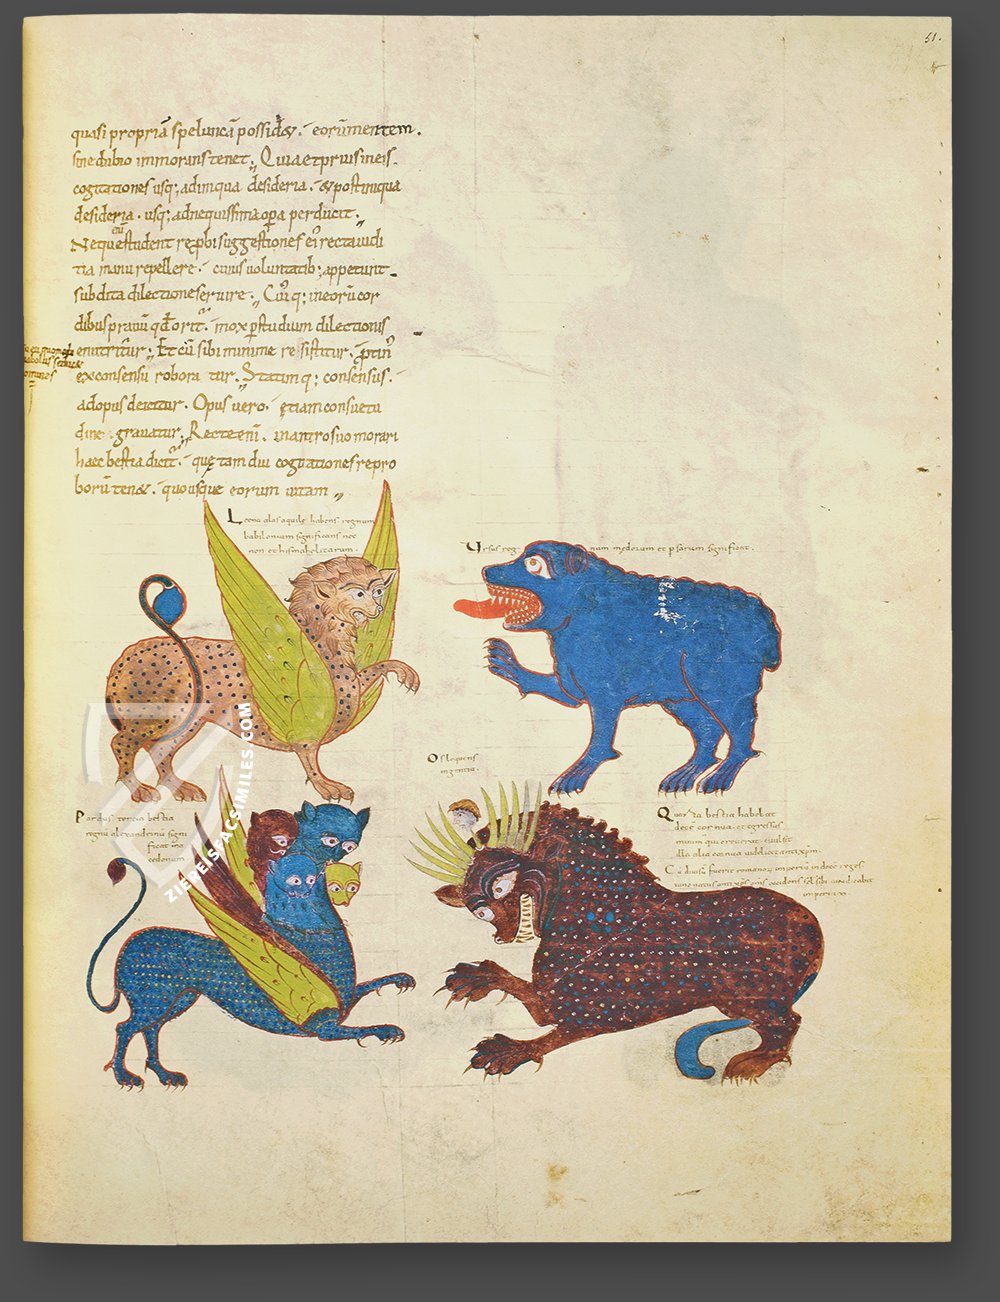 51.
quasi propriā speluncā possid&. eorū mentem.
sine dubio inmorans tenet. Quia et prius in eis.
cogitationes usq; ad iniqua desideria. & post iniqua
desideria. usq; ad nequissima opa perducit.
Neque student reprobi suggestiones ei recta iudi
tia manu repellere. cuius voluntatib; appetunt
subdita dilectione servire. Cūq; in eorū cor
dibus pravū qd orit. mox p studium dilectionis
enutritur. Et cū sibi minime resistitur. ptin
ex consensu roboratur. Statimq; consensus.
ad opus deicitur. Opus vero. etiam consuetu
dine gravatur. Recte eni. in antro suo morari
haec bestia dicit. quę tam diu cogitationes repro
borū ten&. quousque eorum vitam
Leena alas aquile habens regnum
babilonium significans nec
non et hismahelitarum.
Ursus regnum medorum et psarum significat.
Os loquens
ingentia.
Pardus tercia bestia
regnū alexandrinū signi
ficat
cedonum
Quarta bestia habebat
dece cornua. et egressus
qui
illa alia cornua
Cū divisū fuerit romanor imperiū in dece reges
imperia
ZIEREIS FACSIMILES.COM